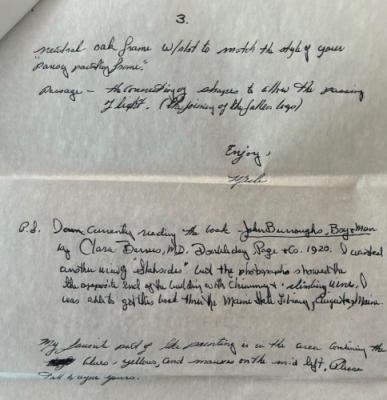 3.
neutral oak frame w/slot to match the style of your
"pansy painting frame."
Passage - the connecting of shapes to allow the passing
of light. (the joining of the fallen logs)
Enjoy,
P.S. I am currently reading the book John Burroughs, Boy & Man
by Clara Barrus, M.D. Doubleday, Page & Co. 1920. I wanted
another view of "Slabsides" but the photographs showed the
the opposite end of the building with chimney & climbing vines. I
was able to get this book thru the Maine State Library, Augusta, Maine.
My favorite part of the painting is in the area combining the
blues - yellows, and mauves on the mid left. Please
tell us yours.